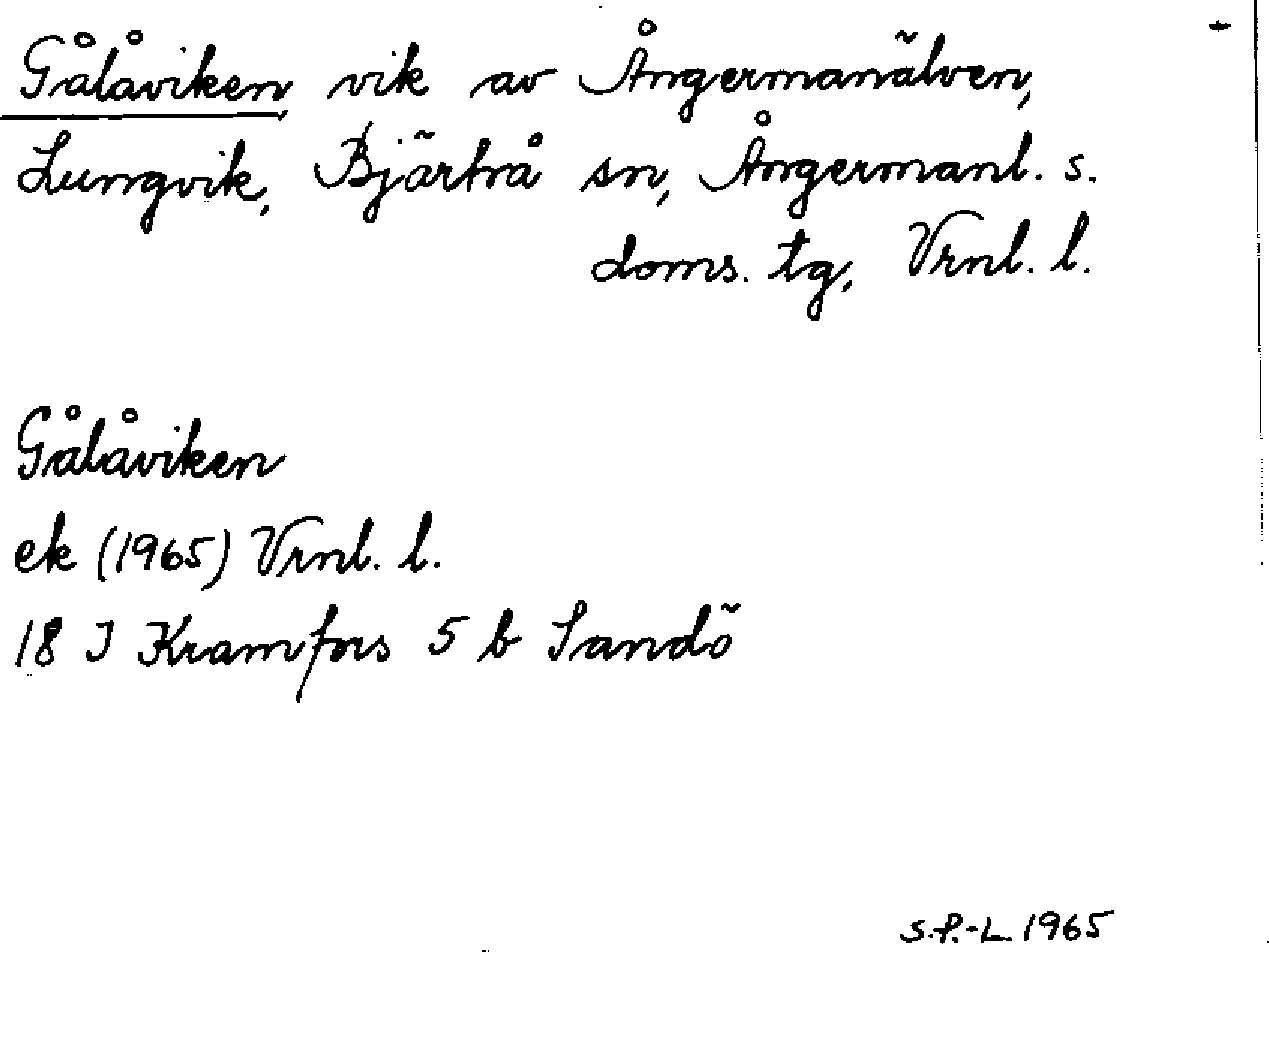 Gålåviken vik av Ångermanälven,
Lungvik, Bjärtrå sn, Ångermanl. s.
doms. tg, Vrnl. l.
Gålåviken
ek (1965) Vrnl. l.
18 I Kramfors 5 b Sandö
S.P.-L 1965